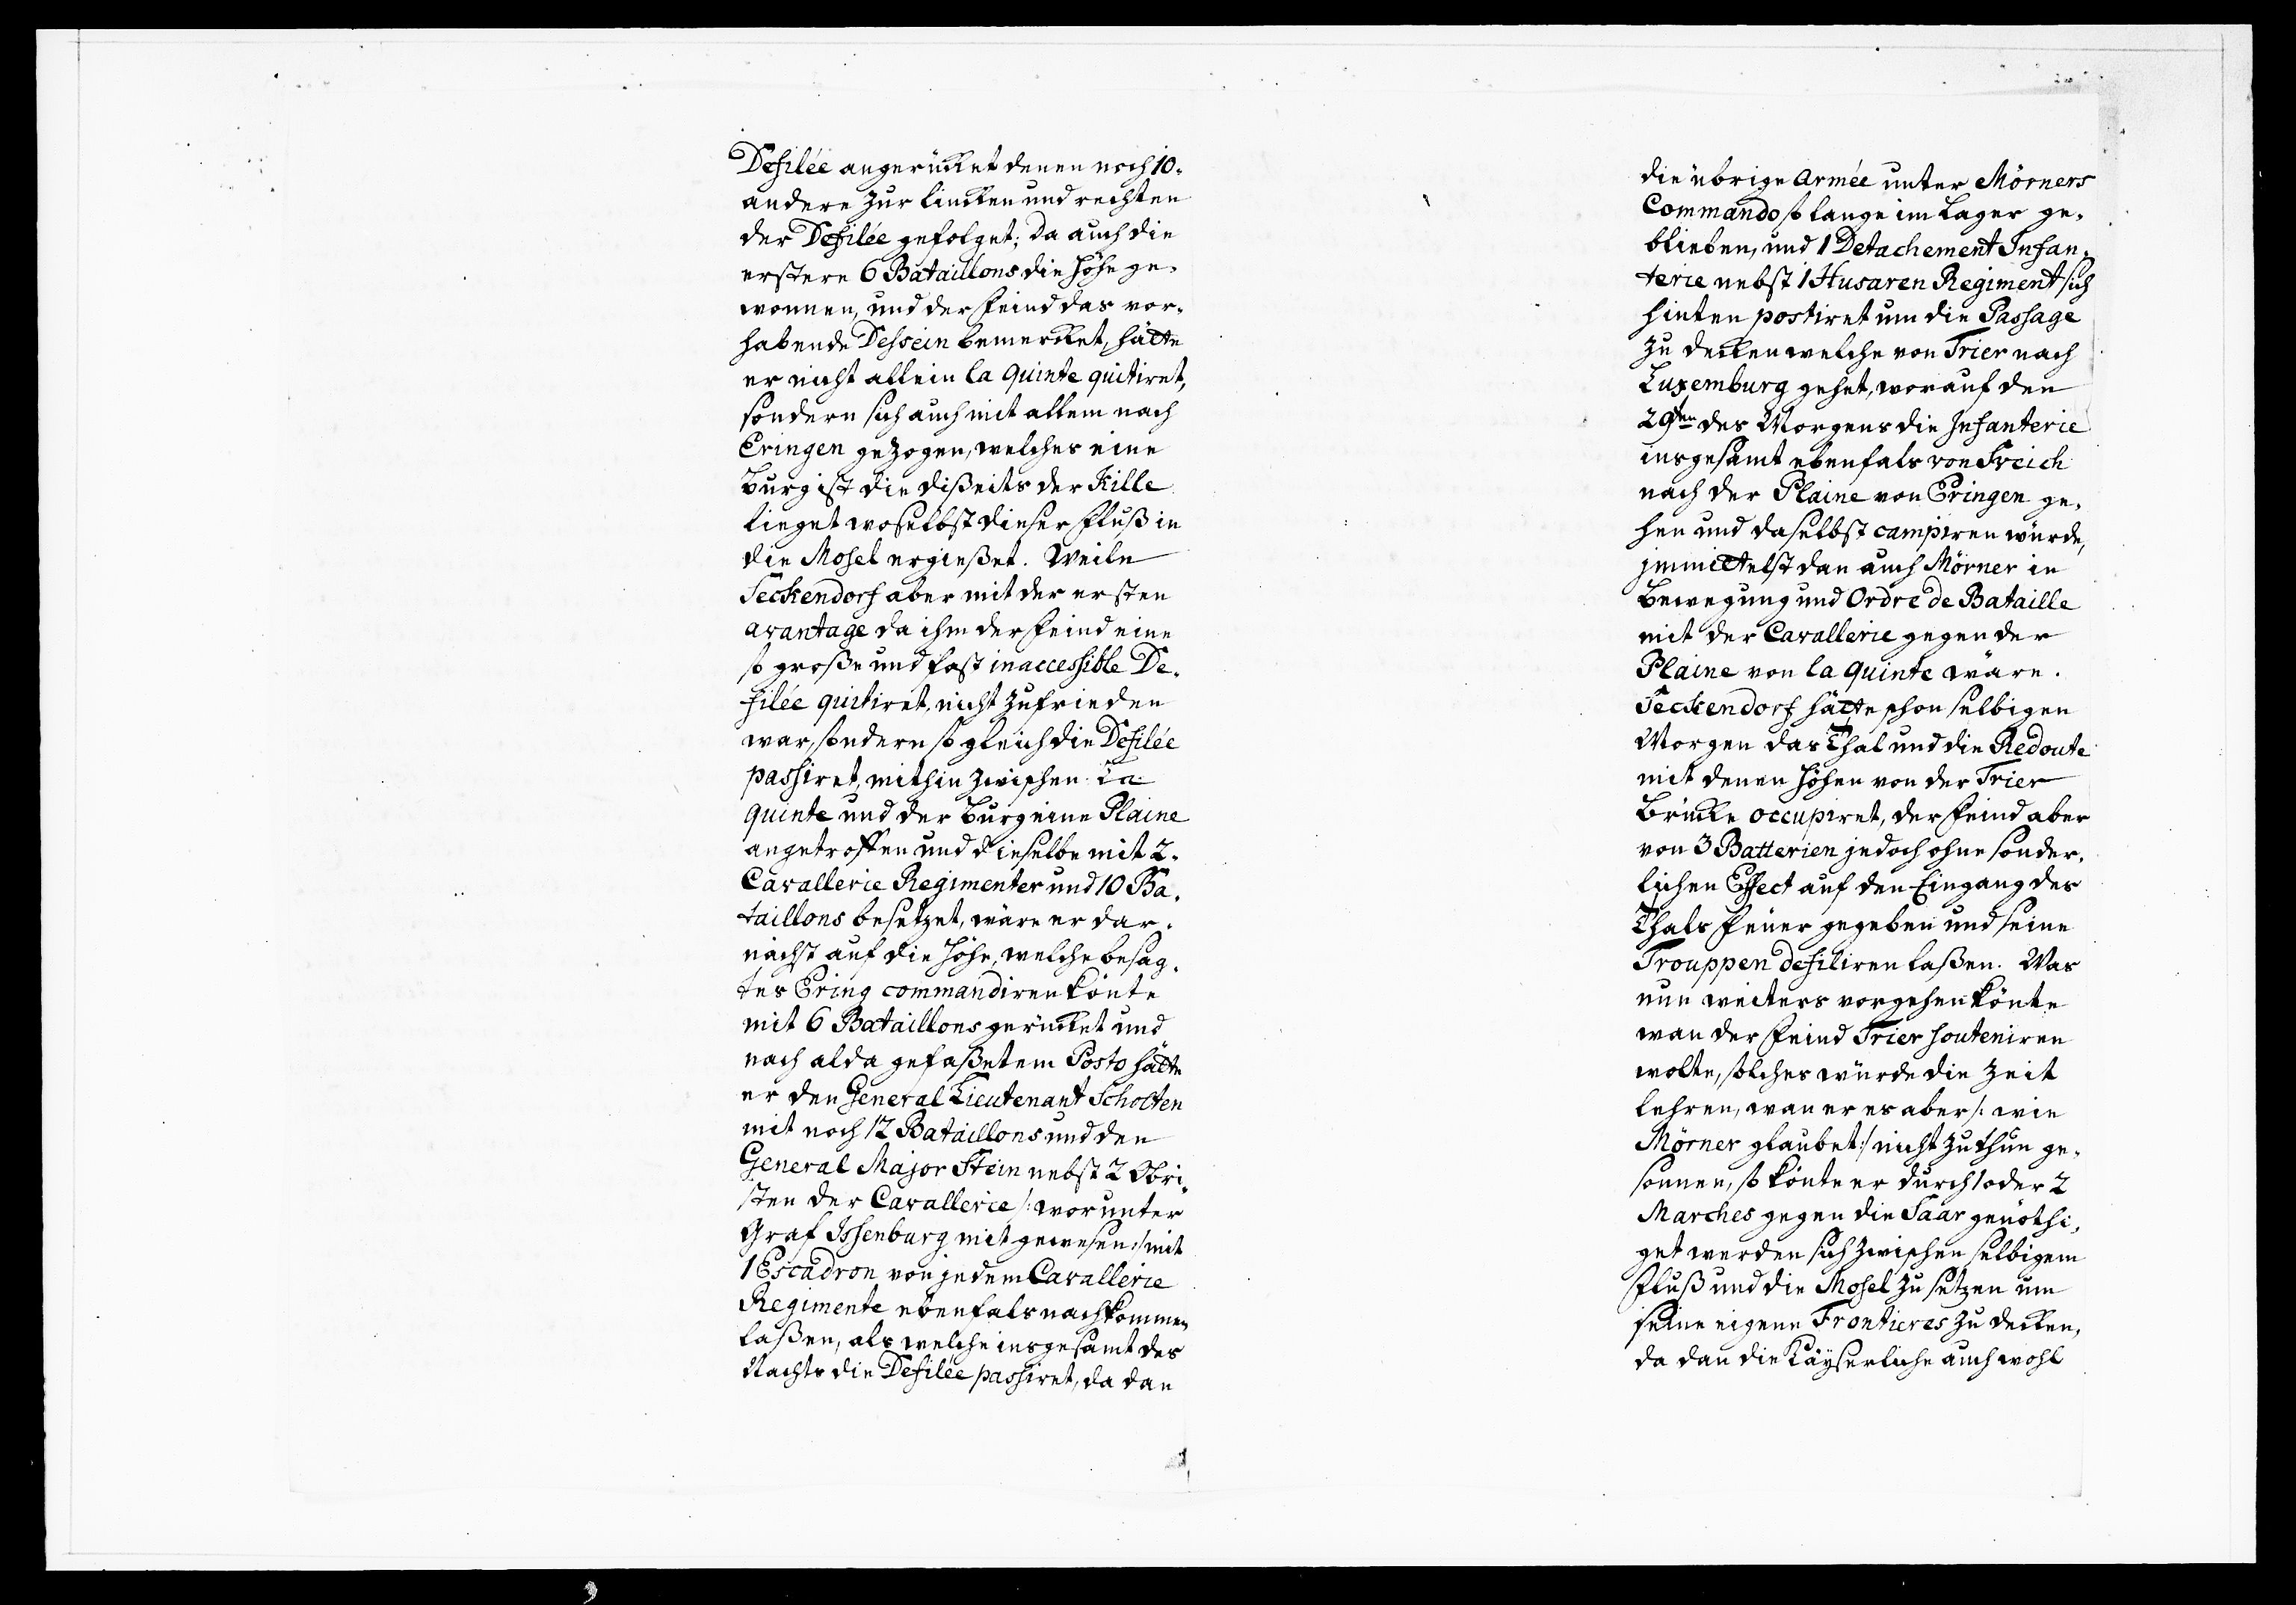 Defilée angerücket denen noch 10.
andere zur lincken und rechten
der Defilée gefolget; da auch die
erstere 6 Bataillons die Höhe ge-
wonnen, und der Feind das vor-
habende Dessein bemercket, hätte
er nicht allein la Quinte quitiret,
sondern sich auch mit allem nach
Eringen gezogen, welches eine
Burg ist die dißeits der Kille
lieget woselbst dieser Fluß in
die Mosel ergießet. Weile
Seckendorf aber mit der ersten
avantage da ihm der Feind eine
so große und fast inaccessible De-
filée quitiret, nicht zufrieden
war, sondern so gleich die Defilée
passiret, mithin zwischen La
Quinte und der Burg eine Plaine
angetroffen und dieselbe mit 2.
Cavallerie Regimenter und 10 Ba-
taillons besetzet, wäre er dar-
nächst auf die Höhe, welche besag-
tes Ering commandiren könte
mit 6 Bataillons gerücket und
nach alda gefaßetem Posto hätte
er den General Lieutenant Scholten
mit noch 12 Bataillons und den
General Major Stein nebst 2 Obri-
sten der Cavallerie /: worunter
Graf Issenburg mit gewesen :/ mit
1 Escadron von jedem Cavallerie
Regimente ebenfals nachkommen
laßen, als welche insgesamt des
Nachts die Defilée passiret, da dan
die übrige Armée unter Mörners
Commando so lange im Lager ge-
blieben, und 1 Detachement Infan-
terie nebst 1 Husaren Regiment sich
hinten postiret um die Passage
zu decken welche von Trier nach
Luxemburg gehet, worauf den
29ten des Morgens die Infanterie
insgesamt ebenfals von Freich
nach der Plaine von Eringen ge-
hen und daselbst campiren würde,
immittelst dan auch Mörner in
Bewegung und Ordre de Bataille
mit der Cavallerie gegen der
Plaine von la Quinte wäre.
Seckendorf hätte schon selbigen
Morgen das Thal und die Redoute
mit denen Höhen von der Trier
Brücke occupiret, der Feind aber
von 3 Batterien jedoch ohne sonder-
lichen Effect auf den Eingang des
Thals Feuer gegeben und seine
Trouppen defiliren laßen. Was
nun weiters vorgehen könte
wan der Feind Trier souteniren
wolte, solches würde die Zeit
lehren, wan er es aber /: wie
Mörner glaubet :/ nicht zu thun ge-
sonnen, so könte er durch 1 oder 2
Marches gegen die Saar genöthi-
get werden sich zwischen selbigem
Fluß und die Mosel zu setzen um
seine eigene Frontieres zu decken,
da dan die Kayserliche auch wohl